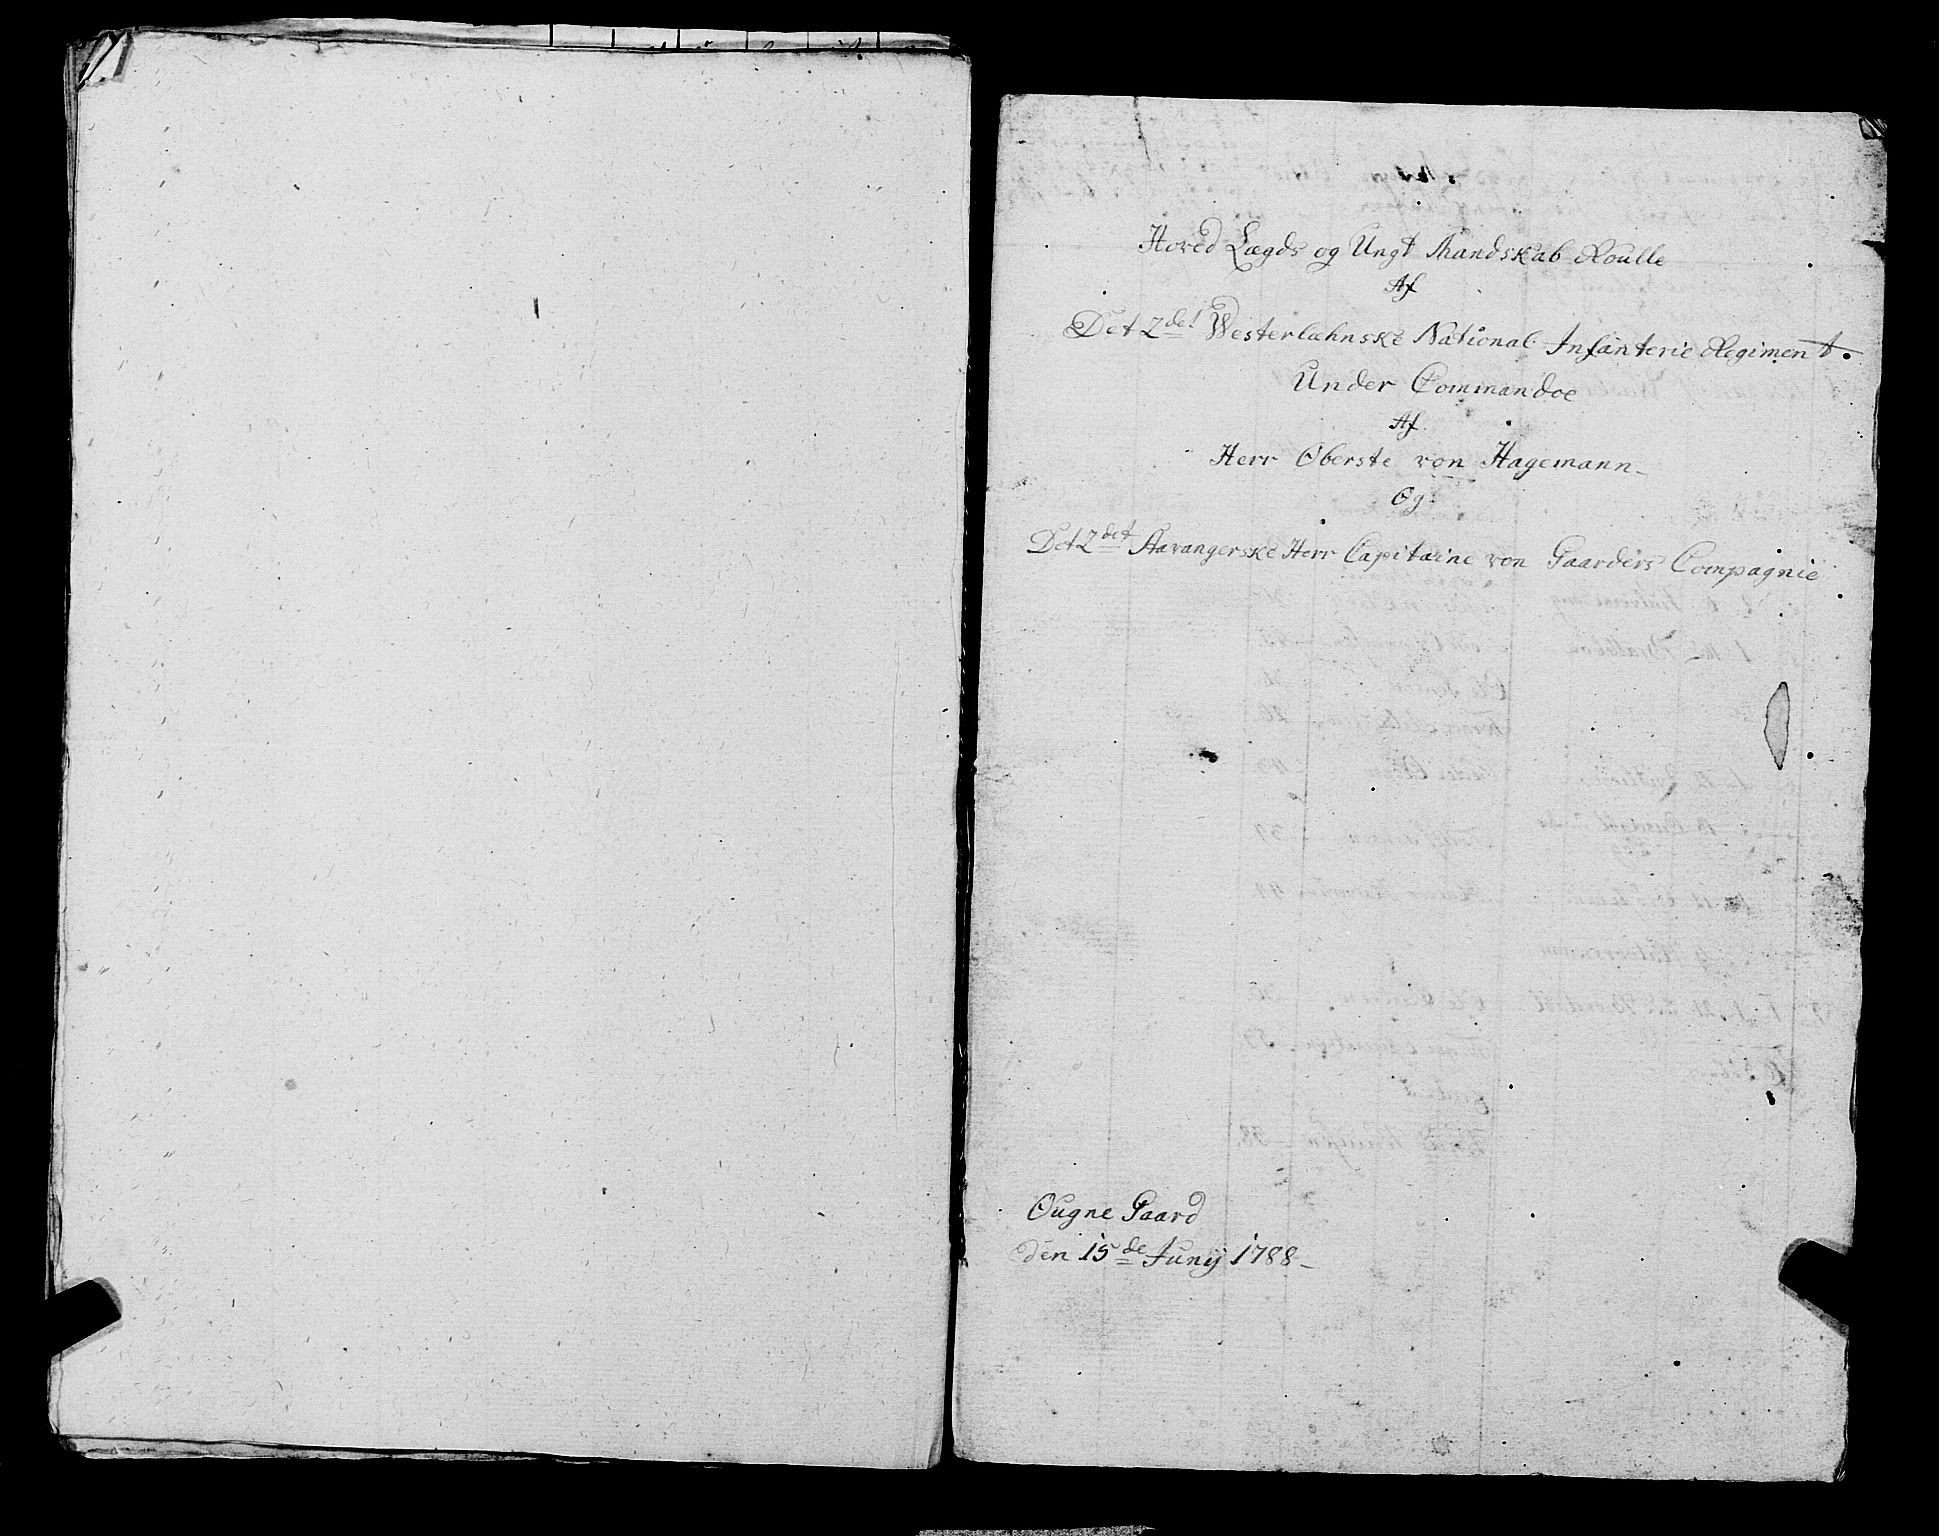 Hoved Lægds og Ungt Mandskab Roulle
Af
Det 2det Westerlehnske National Infanterie Regiment.
Under Commandoe
Af
Herr Oberste von Hagemann
Og
Det 2det Stavangerske Herr Capitaine von Gaarders Compagnie
Ougne Gaard
den 15de Junÿ 1788